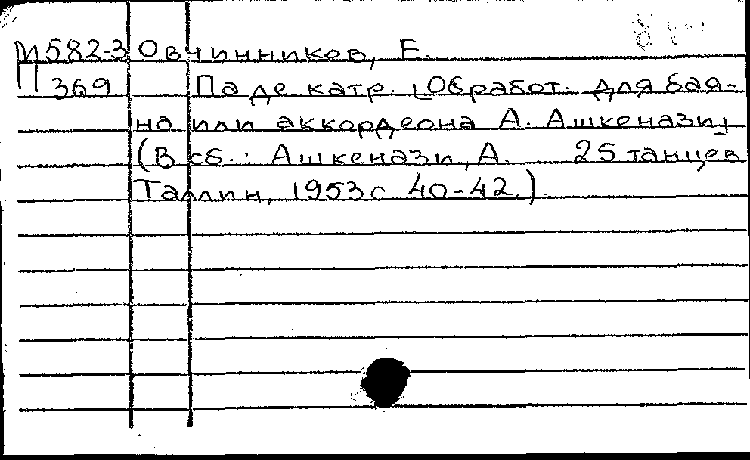 М582-3 Овчинников, Е.
П 369 Па де катр. [Обработ. для бая-
на или аккордеона А. Ашкенази]
(В сб.: Ашкенази, А. 25 танцев
Таллин, 1953 с 40-42.)